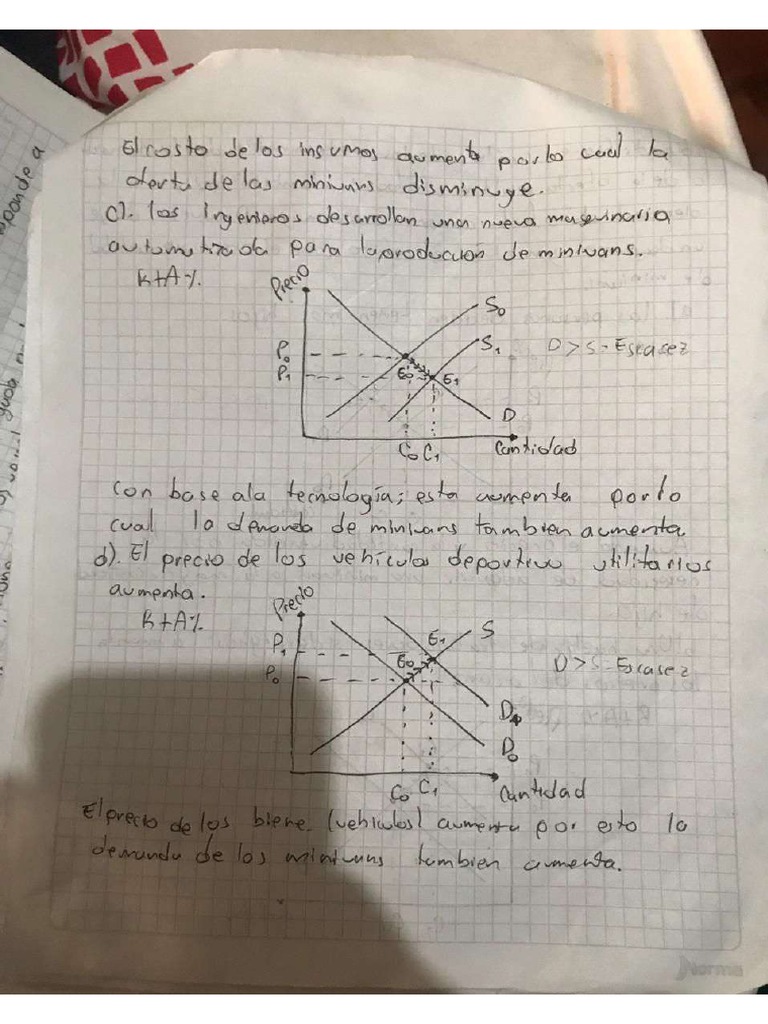 El costo de los insumos aumenta por lo cual la
oferta de las minivans disminuye.
c). los ingenieros desarrollan una nueva maquinaria
automatizada para la producción de minivans.
Precio
P0
P1
S0
S1
D>S-Escasez
E0
E1
D
C0 C1
Cantidad
con base ala tecnología; esta aumenta por lo
cual la demanda de minivans tambien aumenta
d). El precio de los vehículos deportivo utilitarios
aumenta.
Precio
P1
P0
E1
S
E0
D>S-Escasez
D0
C0 C1
Cantidad
El precio de los biene (vehiculos) aumenta por esto la
demanda de los minivans tambien aumenta.
Norma